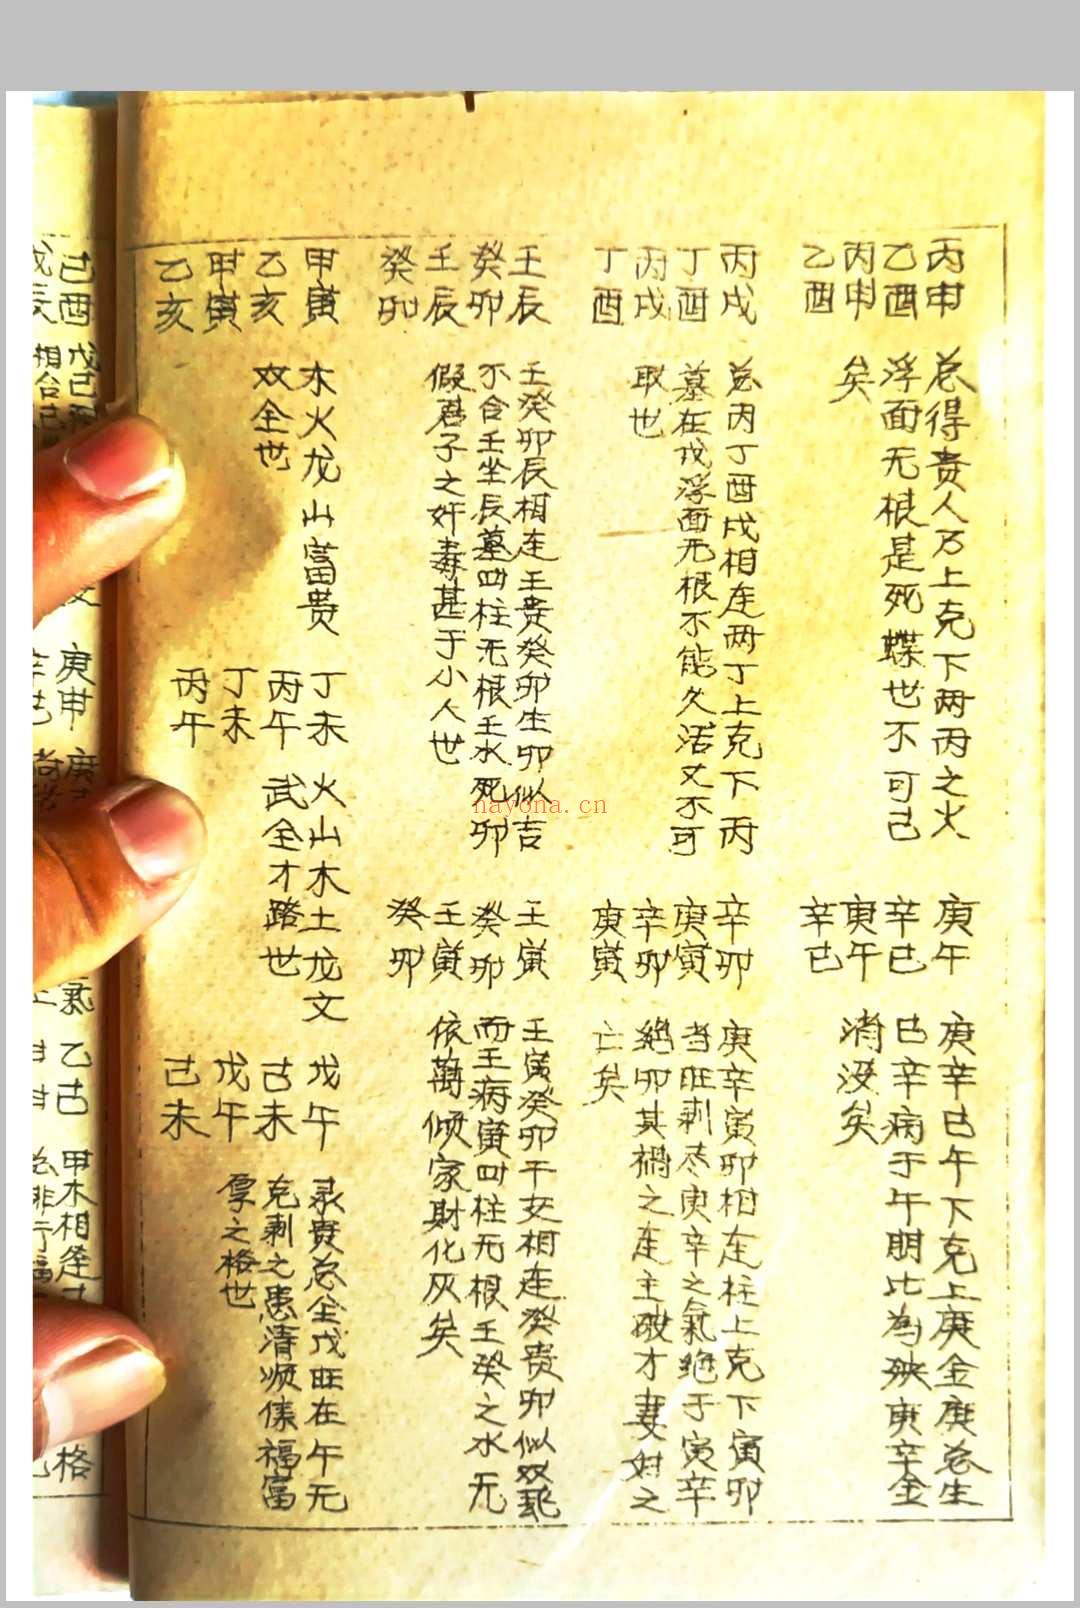 丙申
乙酉
丙申
乙酉
总得贵人乃上克下两丙之火
浮面无根是死蝶也不可己
矣
庚午
辛巳
庚午
辛巳
庚辛巳午下克上庚金庚总生
巳辛病于午朋比为殃庚辛金
消没矣
丙戌
丁酉
丙戌
丁酉
总丙丁酉戌相连两丁上克下丙
墓在戌浮面无根不能久活又不可
取也
辛卯
庚寅
辛卯
庚寅
庚辛寅卯相连柱上克下寅卯
当旺剥尽庚辛之氣绝于寅辛
绝卯其禍之连主破才妻妨之
亡矣
壬辰
癸卯
壬辰
癸卯
壬癸卯辰相连壬贵癸卯生卯似吉
不合壬坐辰墓四柱无根壬水死卯
假君子之奸毒甚于小人世
壬寅
癸卯
壬寅
癸卯
壬寅癸卯干支相连癸贵卯似双飛
而壬病寅四柱无根壬癸之水无
依萬倾家财化灰矣
甲寅
乙亥
甲寅
乙亥
木火龙山富贵
双全世
丁未
丙午
丁未
丙午
火山木土龙文
武全才路世
戊午
己未
戊午
己未
录贵总全戊旺在午无
克剥之患清顺傣福富
厚之格世
己酉
戊辰
戊己
相合己
庚申
辛巳
庚
氣
乙古
甲木相逢
总非行福
格
nayona.cn